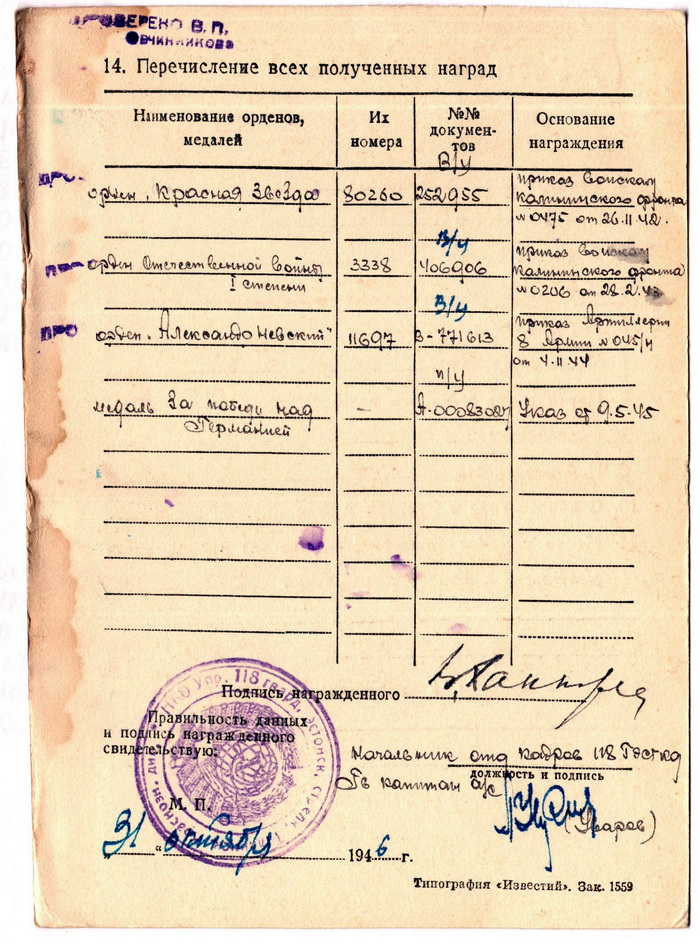 ПРОВЕРЕНО В. П.
Овчинникова
14. Перечисление всех полученных наград
Наименование орденов, медалей
Их номера
№№ докумен-тов
Основание награждения
В/у
ПРО
орден "Красная Звезда 80260 252955 приказ войскам
Калининского фронта
№ 0475 от 26.11.42.
В/у
ПРО
орден Отечественной войны 3338 406906 приказ войскам
I степени Калининского фронта
№ 0206 от 28.2.43
В/у
ПРО
орден "Александр Невский" 11697 В-771613 приказ Артиллерии
8 Армии № 045/н
от 4.11.44
п/у
медаль За победу над — А-0008308 Указ от 9.5.45
Германией
Подпись награжденного
Правильность данных
и подпись награжденного
свидетельствую:
Начальник отд кадров 118
должность и подпись
Гв капитан а/с
(Уваров)
М. П.
НКО Упр. 118 гвард. эстонск. стрелк.
31 " октября 1946 г.
Типография «Известий». Зак. 1559